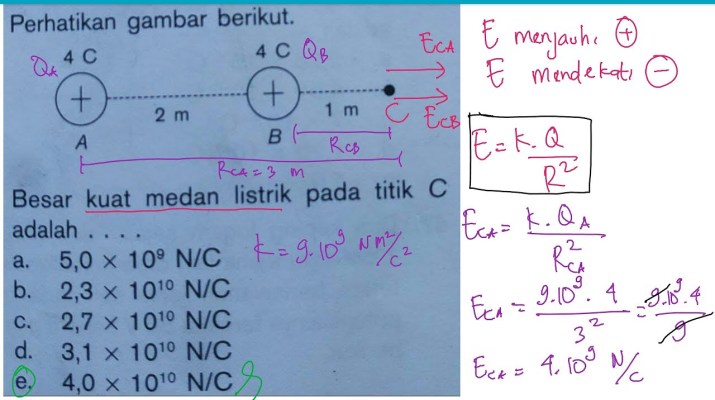 Perhatikan gambar berikut.
4 C
4 C
Q_A
Q_B
+
+
2 m
1 m
A
B
C
E_CA
E_CB
R_CB
R_CA = 3 m
Besar kuat medan listrik pada titik C
adalah . . . .
k = 9.10⁹ Nm²/C²
a. 5,0 × 10⁹ N/C
b. 2,3 × 10¹⁰ N/C
c. 2,7 × 10¹⁰ N/C
d. 3,1 × 10¹⁰ N/C
e. 4,0 × 10¹⁰ N/C
E menjauhi +
E mendekati −
E = k. Q / R²
E_CA = k. Q_A / R_CA²
E_CA = 9.10⁹. 4 / 3² = 9.10⁹. 4 / 9
E_CA = 4.10⁹ N/C